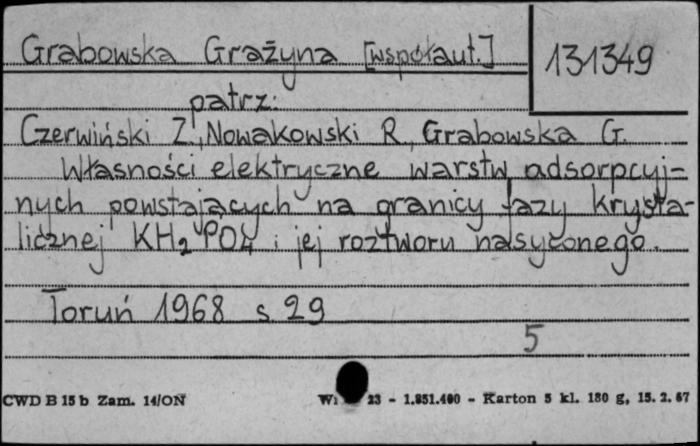 Grabowska Grażyna [współaut.]
131349
patrz:
Czerwiński Z., Nowakowski R., Grabowska G.
Własności elektryczne warstw adsorpcyj=
nych powstających na granicy fazy krysta-
licznej KH₂PO₄ i jej roztworu nasyconego.
Toruń 1968 s. 29
5
CWD B 15 b Zam. 14/ON
23 - 1.851.400 - Karton 5 kl. 180 g, 15. 2. 67